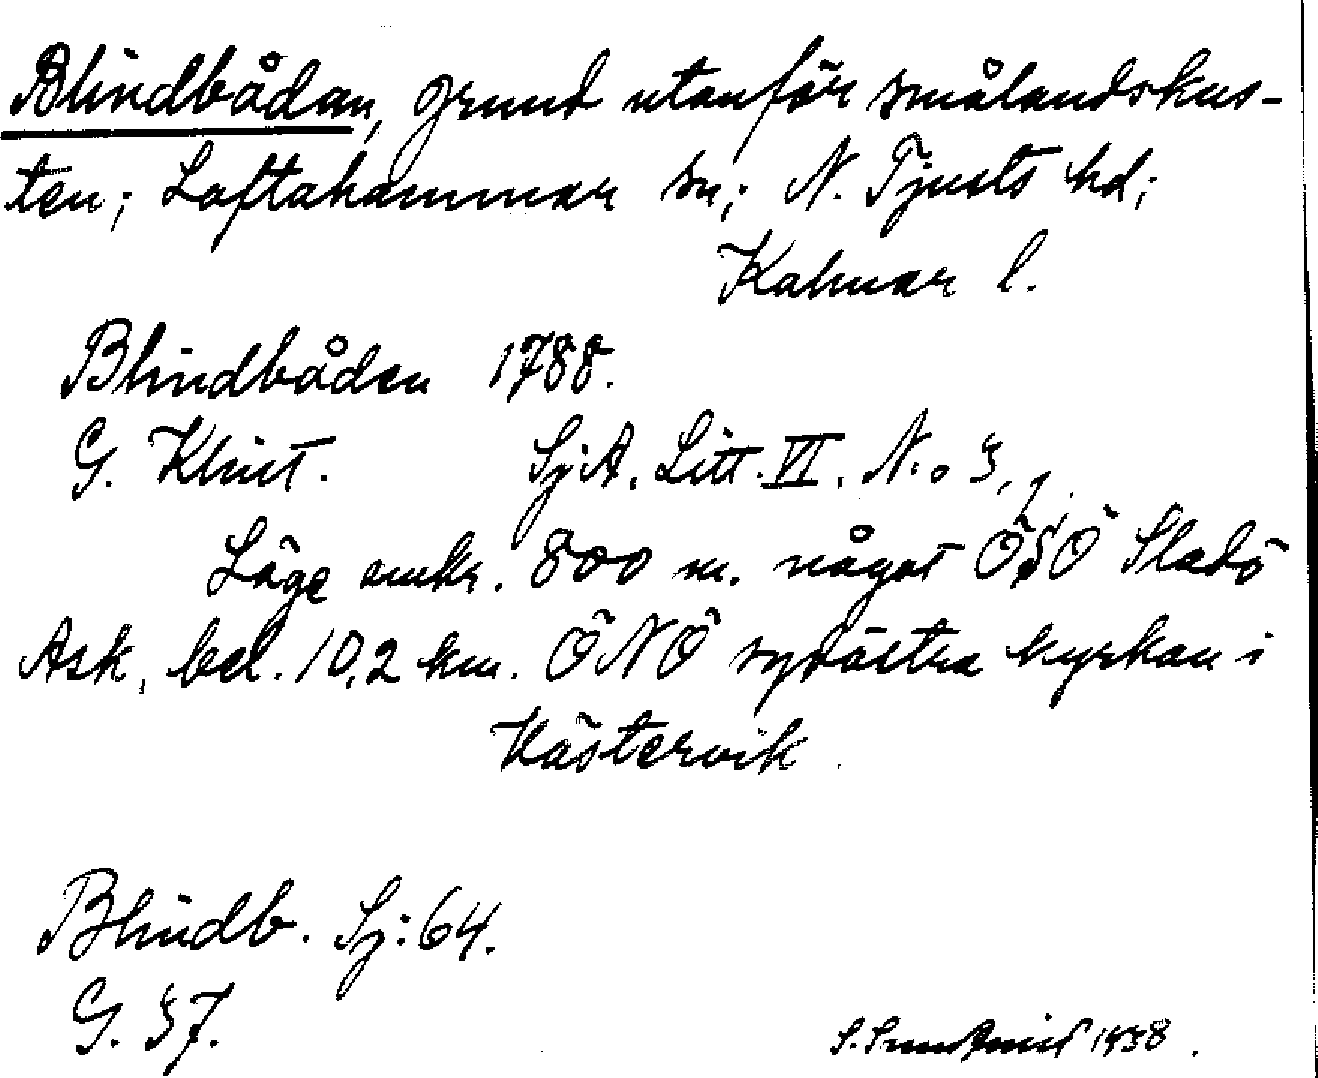 Blindbådan, grund utanför smålandskus-
ten; Loftahammar sn; N. Tjusts hd;
Kalmar l.
Blindbåden 1788.
G. Klint. SjA. Litt. VI. N:o 3,
Läge omkr. 800 m. något ÖSÖ Sladö
Ask, bel. 10,2 km. ÖNÖ sydöstra kyrkan i
Västervik.
Blindb. Sj: 64.
G. 37.
1938.